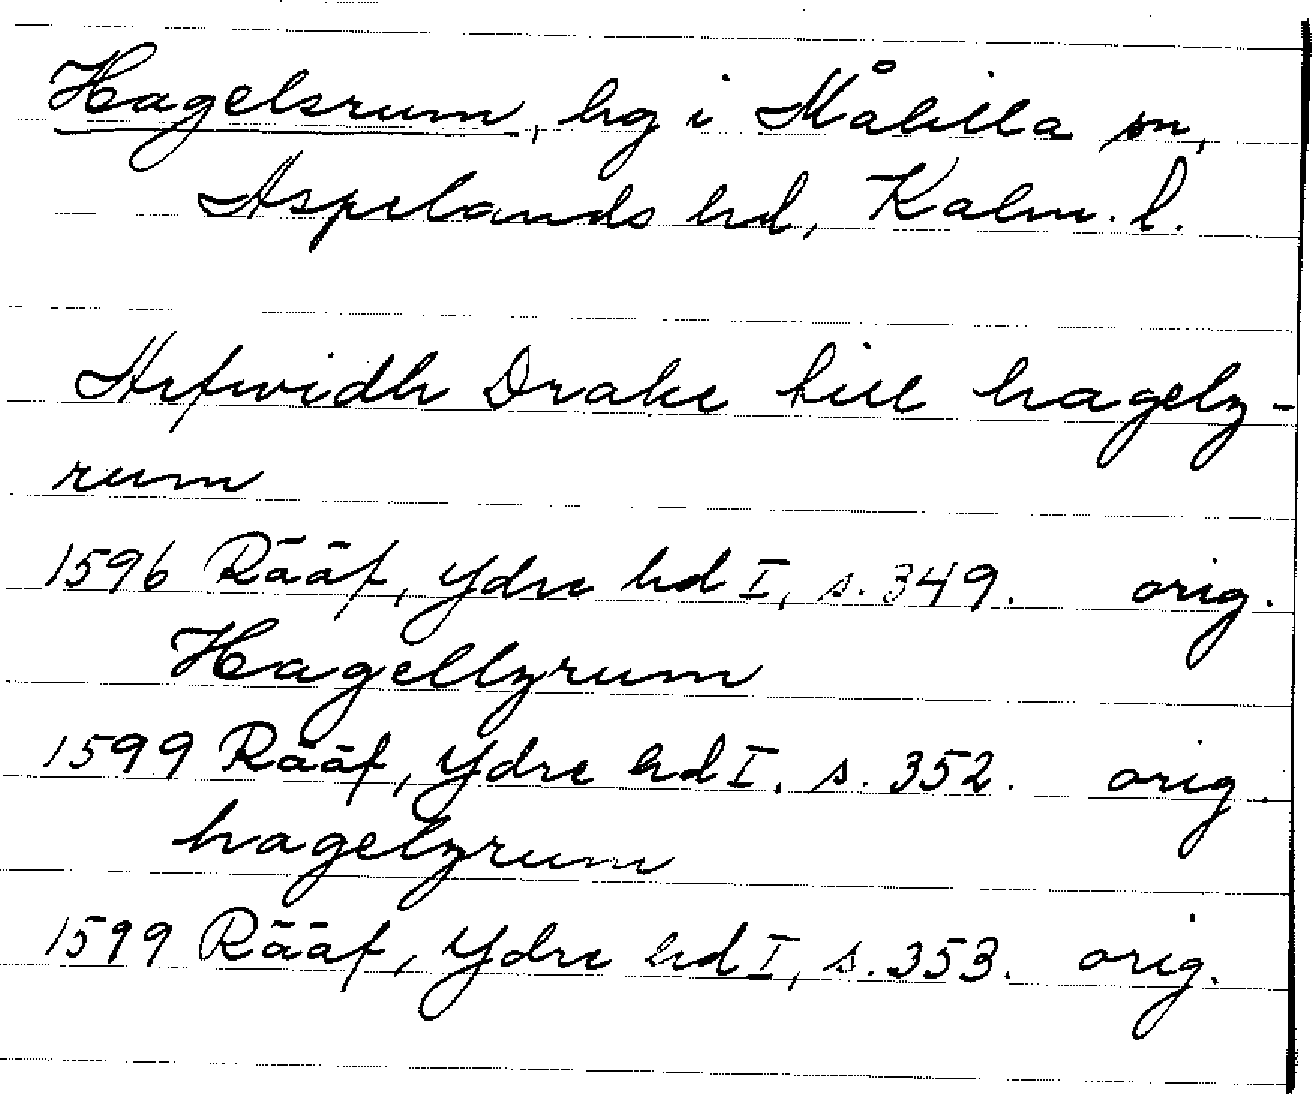 Hagelsrum, hg i Målilla sn,
Aspelands hd, Kalm. l.
Arfwidh Drake till hagelz-
rum
1596 Rääf, Ydre hd I, s. 349. orig.
Hagellzrum
1599 Rääf, Ydre hd I, s. 352. orig.
hagelzrum
1599 Rääf, Ydre hd I, s. 353. orig.